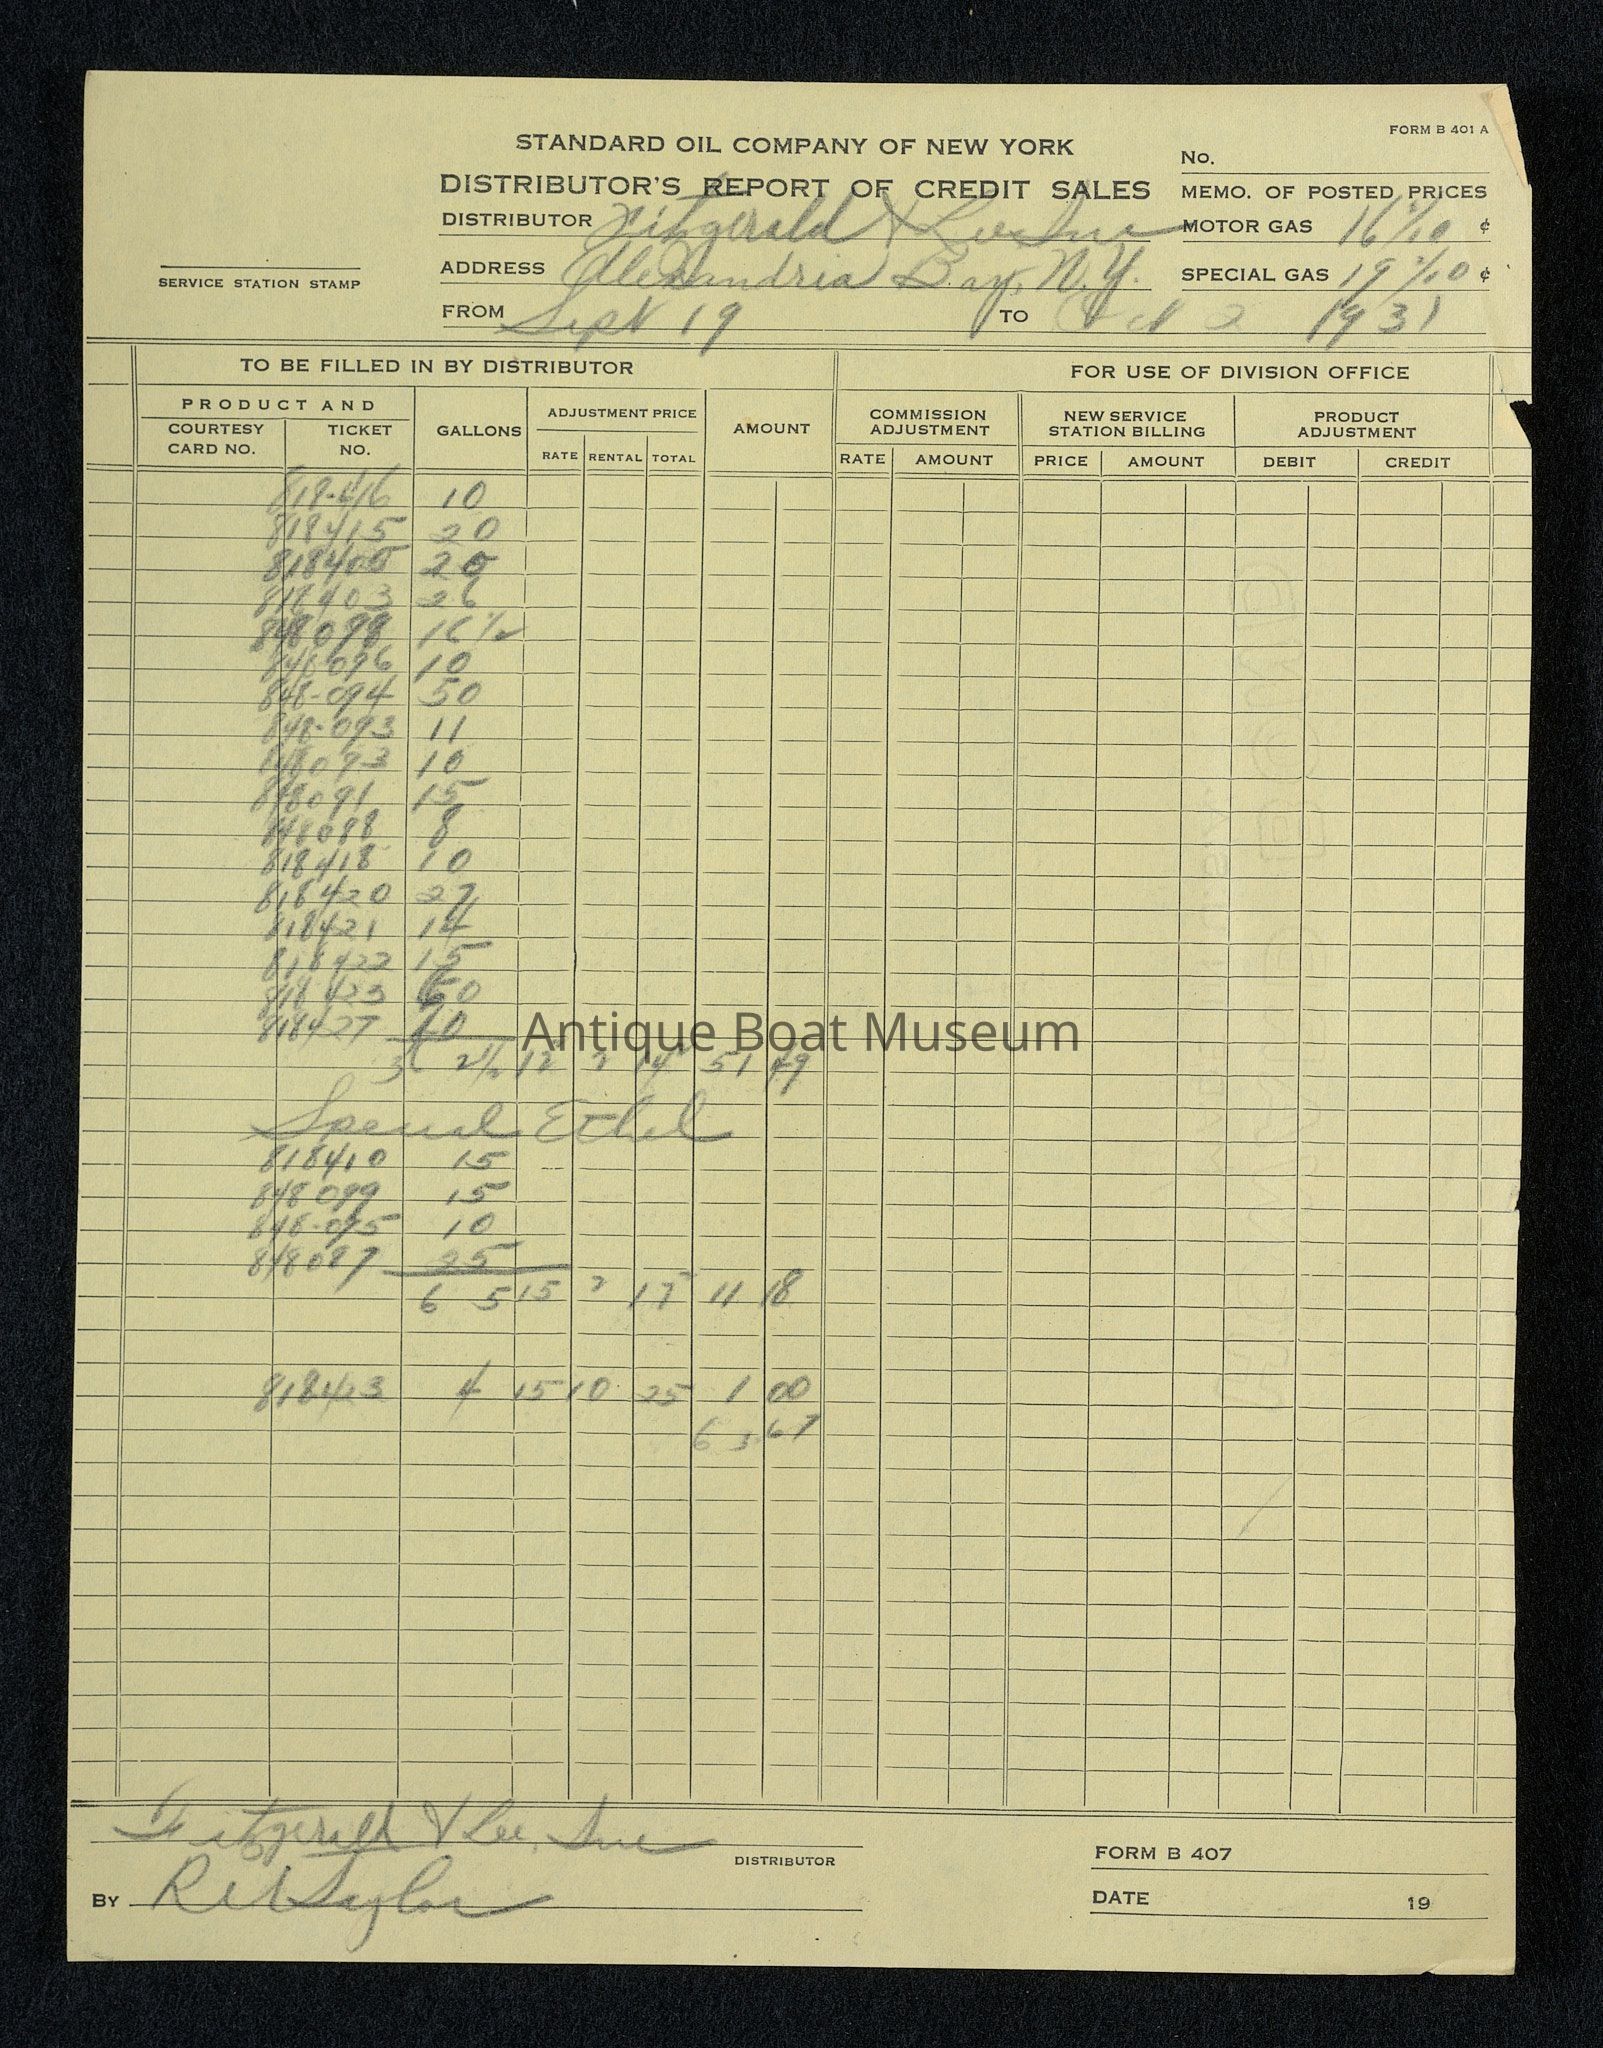 FORM B 401 A
STANDARD OIL COMPANY OF NEW YORK
No.
DISTRIBUTOR'S REPORT OF CREDIT SALES
MEMO. OF POSTED PRICES
DISTRIBUTOR Fitzgerald & Lee Inc
MOTOR GAS 16 /10 ¢
ADDRESS Alexandria Bay, N.Y.
SPECIAL GAS 19 /10 ¢
SERVICE STATION STAMP
FROM Sept 19 TO Oct 2 1931
TO BE FILLED IN BY DISTRIBUTOR
FOR USE OF DIVISION OFFICE
PRODUCT AND
COURTESY CARD NO.
TICKET NO.
GALLONS
ADJUSTMENT PRICE
RATE RENTAL TOTAL
AMOUNT
COMMISSION ADJUSTMENT
RATE AMOUNT
NEW SERVICE STATION BILLING
PRICE AMOUNT
PRODUCT ADJUSTMENT
DEBIT CREDIT
10
818415 20
818405
818403 26
848098 16 1/2
10
848-094 50
848-093 11
848093 10
848091 15
848088 8
818418 10
818420 27
818421 14
818422 15
818423
818427
2 1/2 12 2 14 51 49
Special Ethel
818410 15
848089 15
848-095 10
848087 25
6 5 15 2 17 11 18
818423 4 15 10 25 1 00
6 3 67
Antique Boat Museum
Fitzgerald & Lee, Inc
DISTRIBUTOR
FORM B 407
BY Taylor
DATE 19